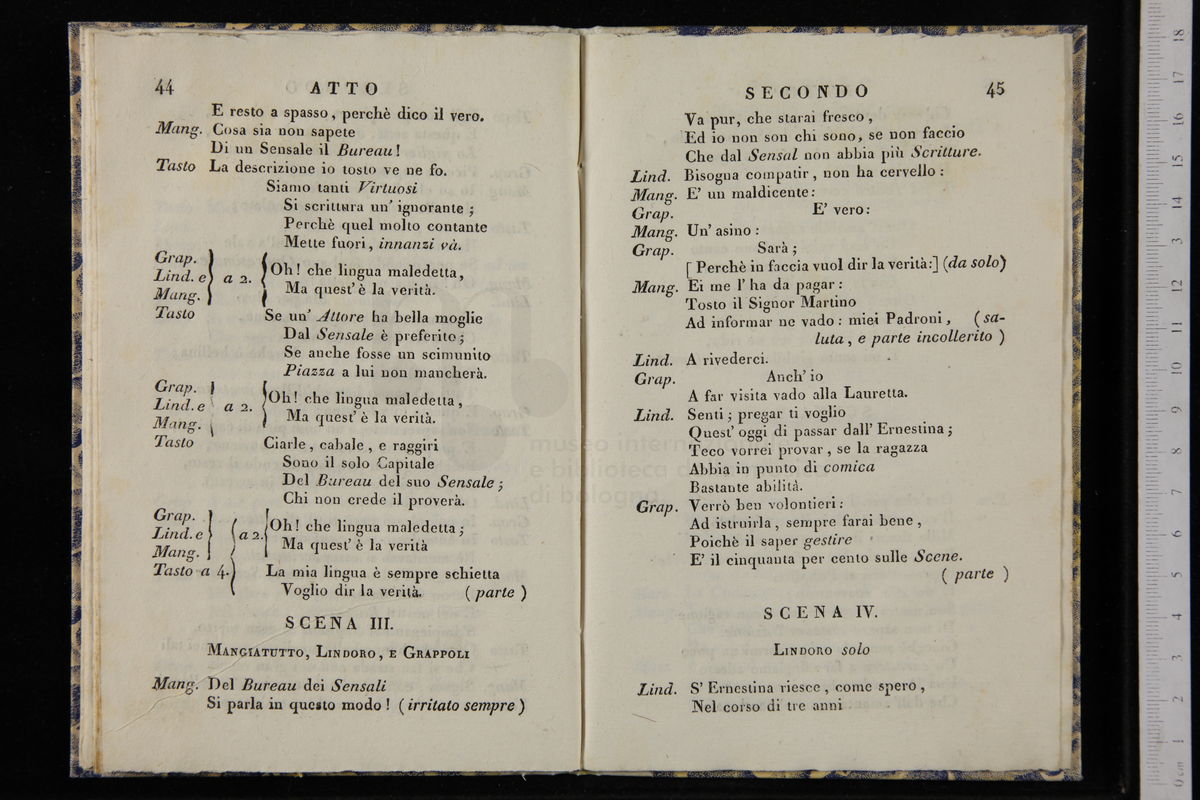 44 ATTO
E resto a spasso, perchè dico il vero.
Mang. Cosa sia non sapete
Di un Sensale il Bureau!
Tasto La descrizione io tosto ve ne fo.
Siamo tanti Virtuosi
Si scrittura un' ignorante ;
Perchè quel molto contante
Mette fuori, innanzi và.
Grap. }
Lind. e } a 2. { Oh! che lingua maledetta,
Mang. } Ma quest' è la verità.
Tasto Se un' Attore ha bella moglie
Dal Sensale è preferito;
Se anche fosse un scimunito
Piazza a lui non mancherà.
Grap. }
Lind. e a 2. { Oh! che lingua maledetta,
Mang. Ma quest' è la verità.
Tasto Ciarle, cabale, e raggiri
Sono il solo Capitale
Del Bureau del suo Sensale;
Chi non crede il proverà.
Grap. }
Lind. e } { a 2. { Oh! che lingua maledetta;
Mang. } Ma quest' è la verità
Tasto a 4. } La mia lingua è sempre schietta
Voglio dir la verità. ( parte )
SCENA III.
MANGIATUTTO, LINDORO, E GRAPPOLI
Mang. Del Bureau dei Sensali
Si parla in questo modo ! ( irritato sempre )
SECONDO 45
Va pur, che starai fresco,
Ed io non son chi sono, se non faccio
Che dal Sensal non abbia più Scritture.
Lind. Bisogna compatir, non ha cervello :
Mang. E' un maldicente:
Grap. E' vero:
Mang. Un' asino :
Grap. Sarà ;
[ Perchè in faccia vuol dir la verità:] (da solo)
Mang. Ei me l' ha da pagar :
Tosto il Signor Martino
Ad informar ne vado : miei Padroni, ( sa-
luta, e parte incollerito )
Lind. A rivederci.
Grap. Anch' io
A far visita vado alla Lauretta.
Lind. Senti ; pregar ti voglio
Quest' oggi di passar dall' Ernestina ;
Teco vorrei provar, se la ragazza
Abbia in punto di comica
Bastante abilità.
Grap. Verrò ben volontieri :
Ad istruirla, sempre farai bene,
Poichè il saper gestire
E' il cinquanta per cento sulle Scene.
( parte )
SCENA IV.
LINDORO solo
Lind. S' Ernestina riesce, come spero,
Nel corso di tre anni
museo
e biblioteca
di bologna